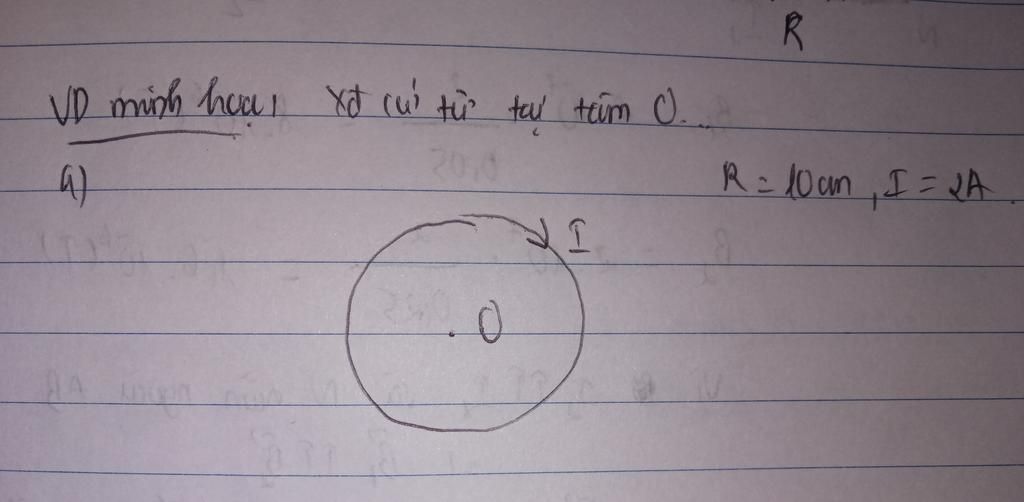 R
VD minh hoạ: Xđ cứ từ tại tâm O...
a)
R = 10cm, I = 2A.
I
O